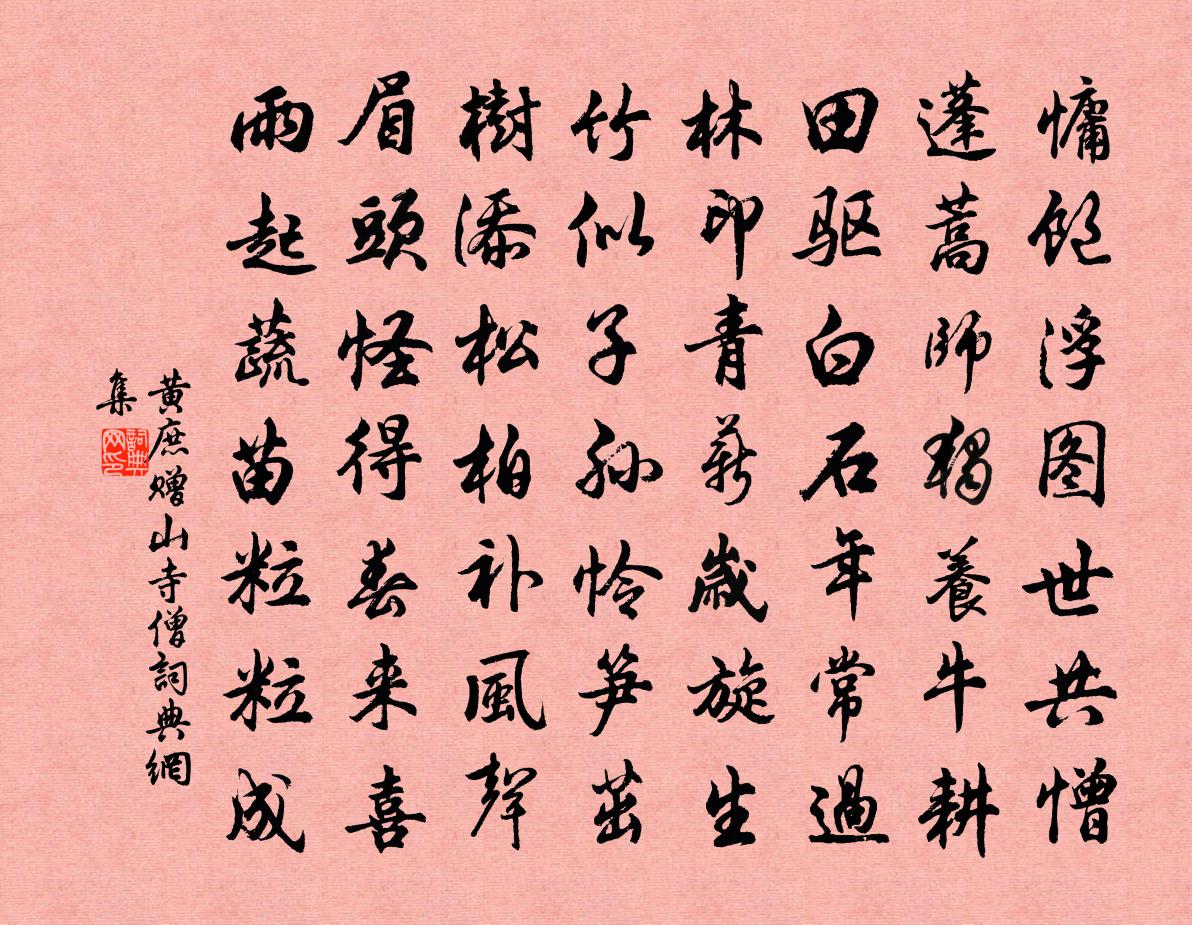 慵饱浮图世共憎
蓬蒿师独养牛耕
田驱白石年常過
林印青薪歳旋生
竹似子孙怜笋茁
樹添松柏补風聲
眉頭怪得春来喜
雨起蔬苗粒粒成
黄庶赠山寺僧詞典網
集
詞典
网印